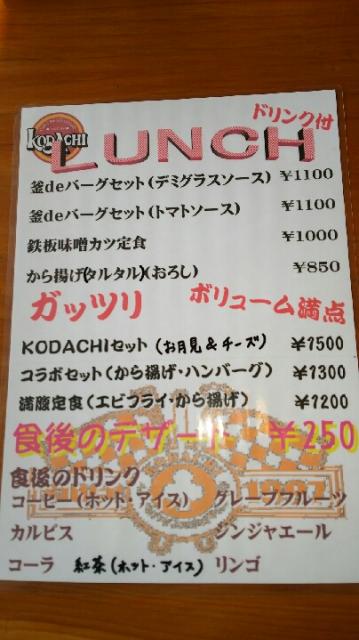 KODACHI
LUNCH
ドリンク付
釜deバーグセット(デミグラスソース) ¥1100
釜deバーグセット(トマトソース) ¥1100
鉄板味噌カツ定食 ¥1000
から揚げ(タルタル)(おろし) ¥850
ガッツリ ボリューム満点
KODACHIセット (お月見&チーズ) ¥1500
コラボセット(から揚げ・ハンバーグ) ¥1300
満腹定食(エビフライ・から揚げ) ¥1200
食後のデザート ¥250
食後のドリンク
コーヒー(ホット・アイス) グレープフルーツ
カルピス ジンジャエール
コーラ 紅茶(ホット・アイス) リンゴ